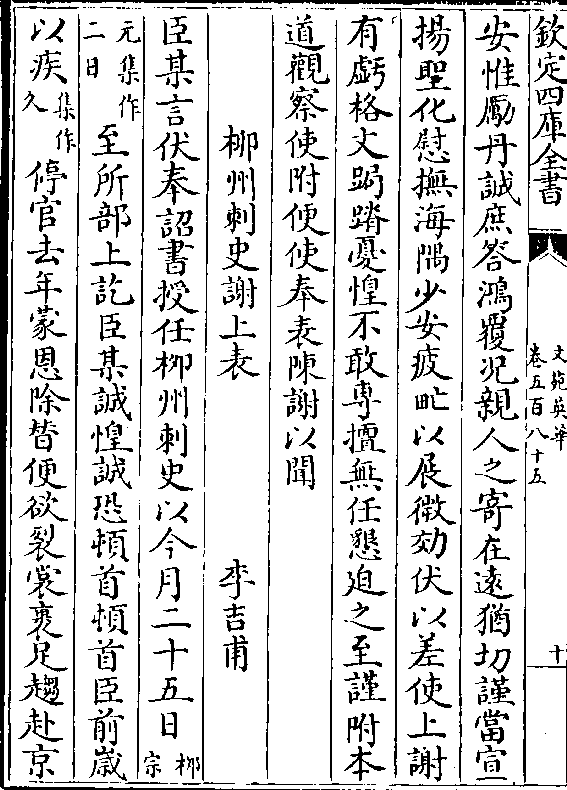 欽定四庫全書
文苑英華
卷五百八十五
十
安惟勵丹誠庶答鴻覆況親人之寄在遠猶切謹當宣
揚聖化慰撫海隅少安疲甿以展微効伏以差使上謝
有虧格文跼蹐憂惶不敢専擅無任懇迫之至謹附本
道觀察使附便使奉表陳謝以聞
柳州刺史謝上表 李吉甫
臣某言伏奉詔書授任柳州刺史以今月二十五日柳宗
元集作二日至所部上訖臣某誠惶誠恐頓首頓首臣前嵗
以疾集作久停官去年蒙恩除替便欲裂裳裹足趨赴京